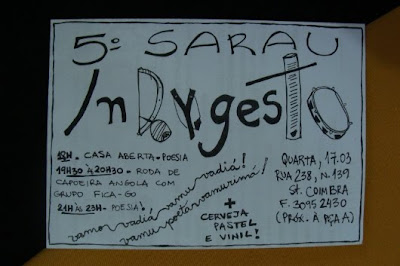 5º SARAU
InDYgesto
19H. - CASA ABERTA - POESIA
19H30 ÀS 20H30 - RODA DE
CAPOEIRA ANGOLA COM
GRUPO FICA-GO
21H ÀS 23H - POESIA!
vamos vadiá vamu vadiá!
vamu poetar vamu rimá!
+
CERVEJA
PASTEL
E VINIL!
QUARTA, 17.03
RUA 238, N.139
St. COIMBRA
F. 3095 2430
(PRÓX. À PÇA A)